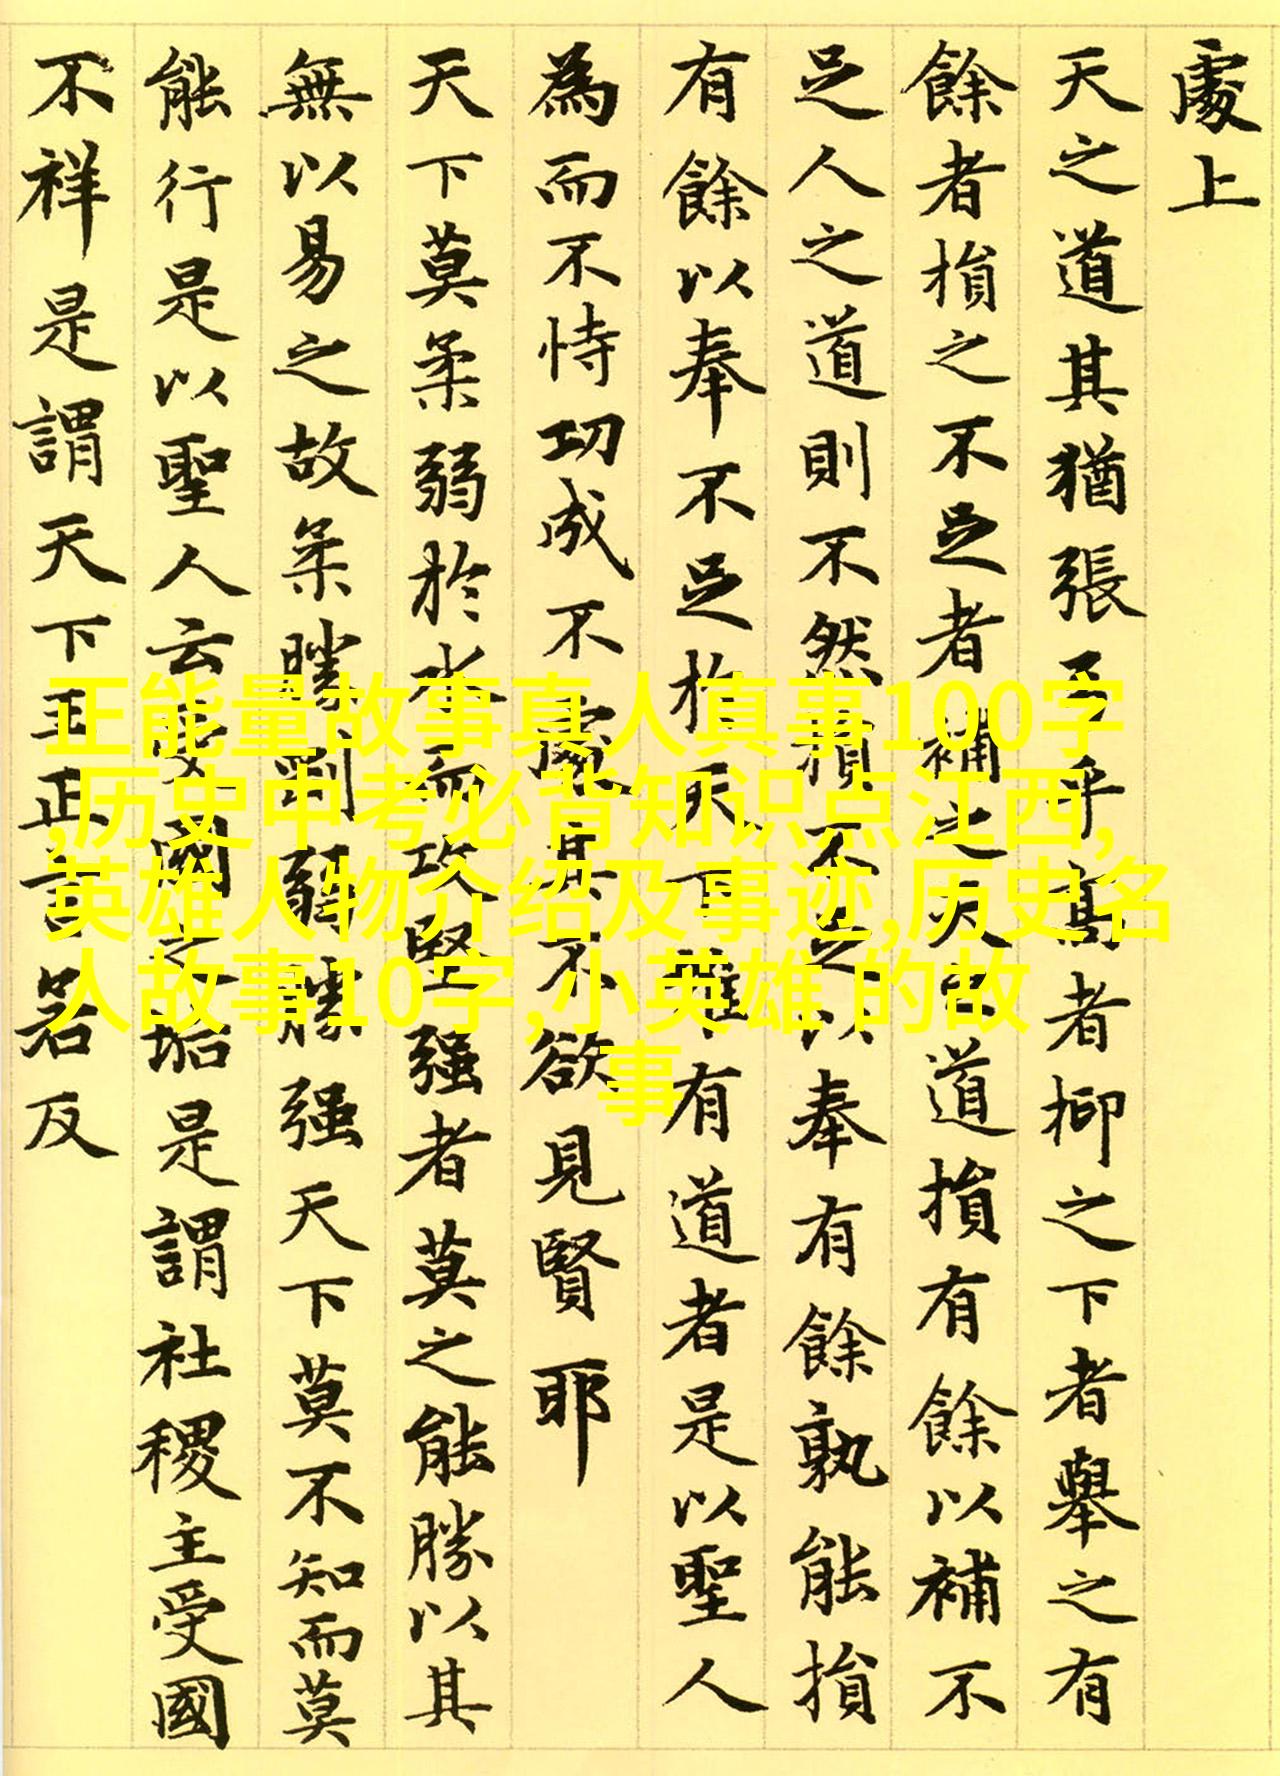 處上
天之道其猶張弓乎高者抑之下者舉之有
餘者損之不足者補之天之道損有餘以補不
足人之道則不然損不足以奉有餘孰能損
有餘以奉不足於天下唯有道者是以聖人
為而不恃功成不處其不欲見賢耶
天下莫柔弱於水而攻堅强者莫之能勝以其
無以易之故柔勝剛弱勝强天下莫不知而莫
能行是以聖人云受國之垢是謂社稷主受國
不祥是謂天下王正言若反
正能量故事真人真事100字
,历史中考必背知识点江西,
英雄人物介绍及事迹,历史名
人故事10字,小英雄 的故
事